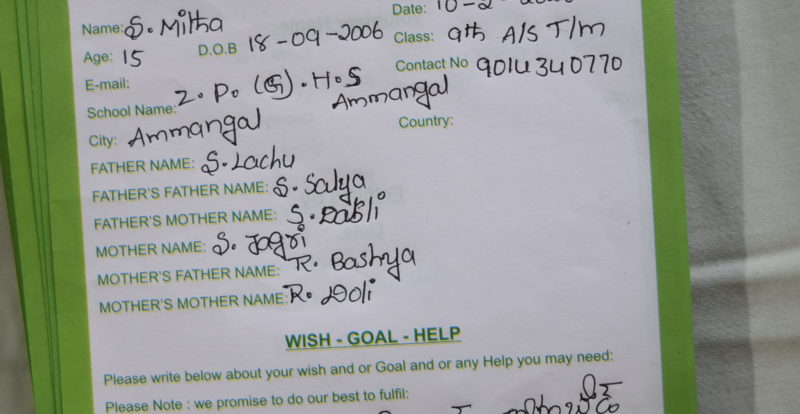 Date: 10-2-
Name: S. Mitha
Age: 15 D.O.B 18-09-2006 Class: 9th A/S T/m
E-mail: Contact No 9014340770
School Name: Z. P. (G). H. S Ammangal
City: Ammangal Country:
FATHER NAME: S. Lachu
FATHER'S FATHER NAME: S. Salya
FATHER'S MOTHER NAME: S.
MOTHER NAME: S. Jagri
MOTHER'S FATHER NAME: R. Bashya
MOTHER'S MOTHER NAME: R. Doli
WISH - GOAL - HELP
Please write below about your wish and or Goal and or any Help you may need:
Please Note : we promise to do our best to fulfil: